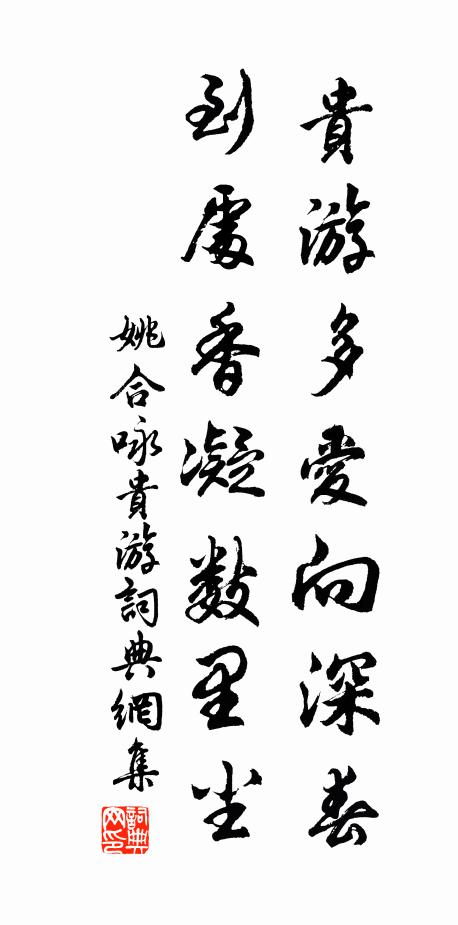 貴游多愛向深春
到處香凝數里尘
姚合咏貴游詞典網集
詞典网印